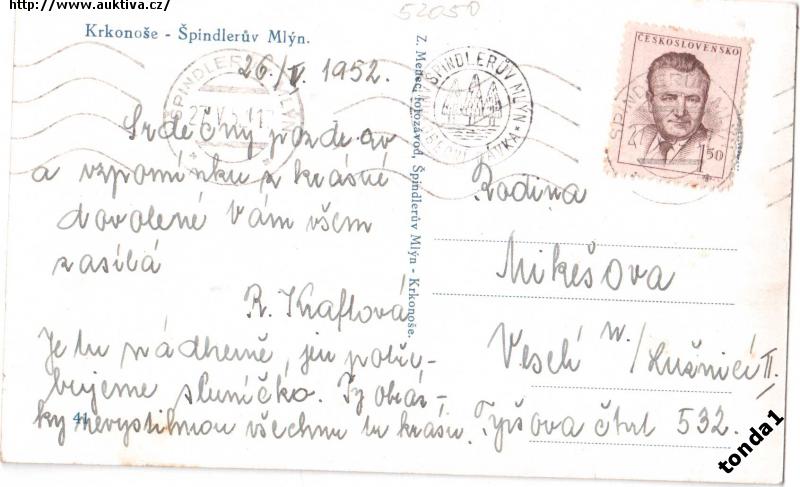 http://www.auktiva.cz/
52050
Krkonoše - Špindlerův Mlýn.
26/V. 1952.
Srdečný pozdrav
a vzpomínku z krásné
dovolené Vám všem
zasílá
R. Kraftová
Je tu nádherně, jen potře-
bujeme sluníčko. Ty obráz-
ky nevystihnou všechnu tu krásu.
41
Z. Menec, fotozávod, Špindlerův Mlýn - Krkonoše.
ŠPINDLERŮV MLÝN
ŠPINDLERŮV MLÝN
ČESKOSLOVENSKO
1.50
Rodina
Mikešova
Veselí n./Lužnicí II.
Tyršova čtvrť 532.
tonda1